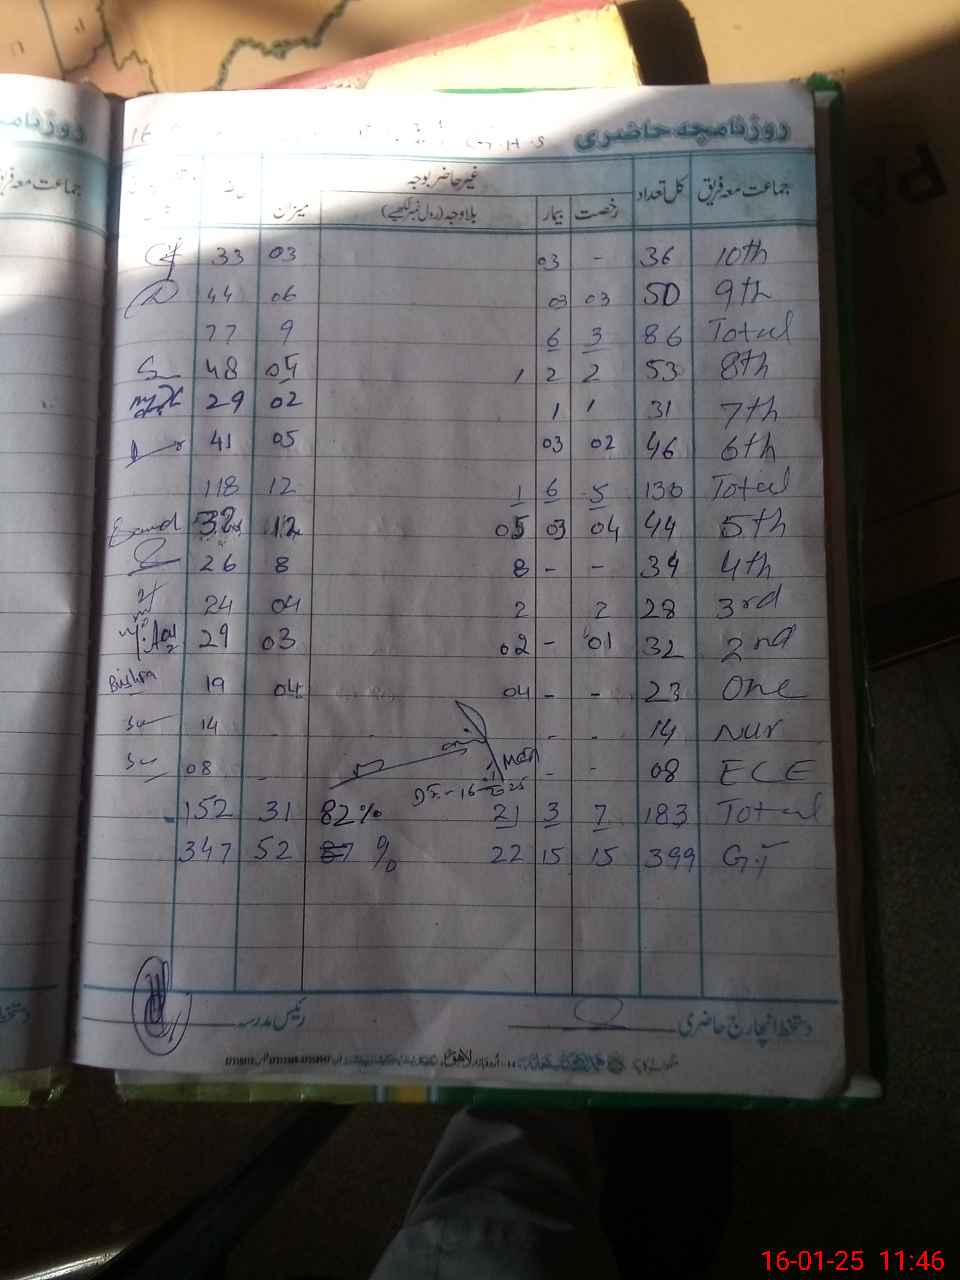 روزنامچہ حاضری
G.H.S
جماعت معہ فریق کل تعداد غیر حاضر بوجہ
رخصت بیمار بلاوجہ (رول نمبر لکھیے) میزان
10th 36 - 03 03 33
9th 50 03 03 06 44
Total 86 3 6 9 77
8th 53 2 2 1 05 48
7th 31 1 1 02 29
6th 46 02 03 05 41
Total 130 5 6 1 12 118
5th 44 04 03 05 12 32
4th 34 - - 8 8 26
3rd 28 2 2 04 24
2nd 32 01 - 02 03 29
One 23 - - 04 04 19 Bushra
Nur 14 - - - 14
ECE 08 - - - 08
Total 183 7 3 21 82% 31 152
G.T 399 15 15 22 87 % 52 347
دستخط انچارج حاضری رئیس مدرسہ
16-01-25 11:46
روزنامچہ
جماعت معہ فریق